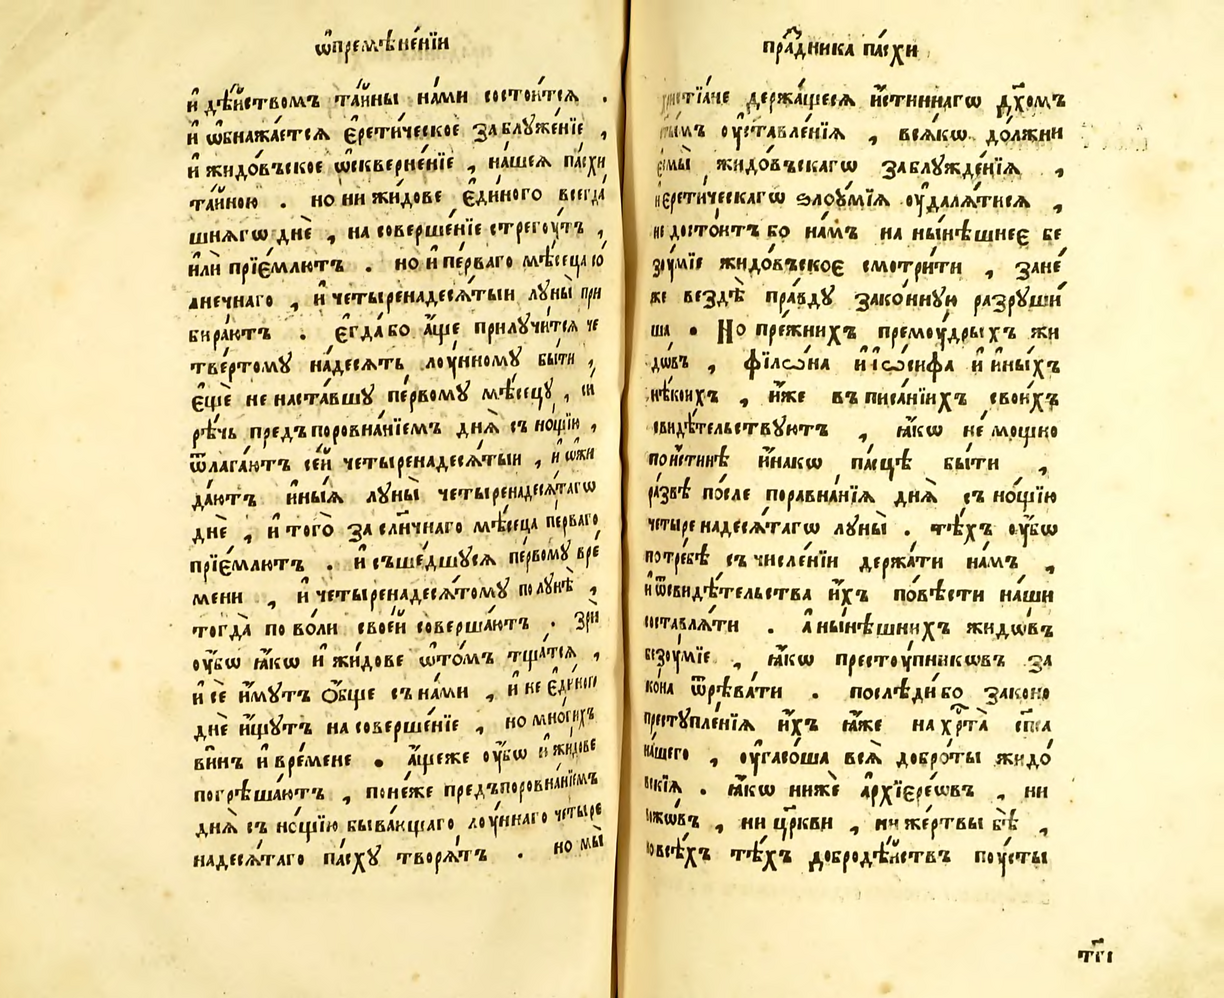 ѡ҆премѣне́нїи
и҆ дѣ́йствомъ та́йны на́ми состои́тсѧ .
и҆ ѡ҆бнажа́етсѧ є҆рети́ческое заблуже́нїе ,
и҆ жидо́въское ѡ҆скверне́нїе , на́шеѧ па́схи
та́йною . но ни жи́дове є҆ди́ного всегда́
шнѧгѡ днѐ , на соверше́нїе стрегꙋ́тъ ,
и҆лѝ прїе́млютъ . но и҆ пе́рваго мѣ́сеца со́
лнечнаго , и҆ четыренадесѧ́тыи луны̀ при
бира́ютъ . є҆гда́ бо а҆́ще прилучи́тсѧ че
тве́ртому на́десѧть лоу́нному бы́ти ,
є҆щѐ не наста́вшу пе́рвому мѣ́сецу , си
рѣ́чь предъ поровна́нїемъ днѧ̀ съ но́щїю ,
ѿлага́ютъ се́й четыренадесѧ́тыи , и҆ ѡ҆жи
да́ютъ и҆ны́ѧ луны̀ четыренадесѧ́тагѡ
днѐ , и҆ того̀ за сл҃нчнаго мѣ́сеца пе́рваго
прїе́млютъ . и҆ съше́дшусѧ пе́рвому вре́
мени , и҆ четыренадесѧ́тому по лунѣ̀ ,
тогда̀ по во́ли свое́й соверша́ютъ . зрѝ
оу҆́бѡ ꙗ҆́кѡ и҆ жи́дове ѡ҆то́мъ тща́тсѧ ,
и҆ сѐ и҆́мутъ ѻ҆́бще съ на́ми , и҆ не є҆ди́ного
днѐ и҆́щутъ на соверше́нїе , но мно́гихъ
ви́нъ и҆ вре́мене . а҆́щеже оу҆́бѡ и҆ жи́дове
погрѣша́ютъ , поне́же предъпоровна́нїемъ
днѧ̀ съ но́щїю быва́ющаго лоу́ннаго четы́ре
надесѧ́таго па́сху творѧ́тъ . но мы̀
пра́здника па́схи
христїа́не держа́щесѧ и҆́стиннагѡ дх҃омъ
ст҃ы́мъ оу҆ставле́нїѧ , всѧ́кѡ до́лжни
є҆смы̀ жидо́въскагѡ заблужде́нїѧ ,
и҆ є҆рети́ческагѡ ѕлоу́мїѧ оу҆далѧ́тисѧ ,
не досто́итъ бо на́мъ на ны́нѣшнее бе
зоу́мїе жидо́въское смотри́ти , зане́
же вездѣ̀ пра́вду зако́нную разруши́
ша . Но пре́жнихъ премоу́дрыхъ жи
дѡ́въ , фїлѡ́на и҆ і҆ѡ́сифа и҆ и҆ны́хъ
нѣ́коихъ , и҆́же въ писа́нїихъ свои́хъ
свидѣ́тельствуютъ , ꙗ҆́кѡ не́ мощно
по и҆́стинѣ и҆на́кѡ па́сцѣ бы́ти ,
ра́звѣ по́сле поравна́нїѧ днѧ̀ съ но́щїю
четыре надесѧ́тагѡ луны̀ . тѣ́хъ оу҆́бѡ
потре́бѣ съчисле́нїи держа́ти на́мъ ,
и҆ ѿсвидѣ́тельства и҆́хъ по́вѣсти на́ши
составлѧ́ти . А ны́нѣшнихъ жидѡ́въ
безоу́мїе , ꙗ҆́кѡ престоу́пникѡвъ за
ко́на ѿрѣва́ти . послѣ́ди бо законо
преступле́нїѧ и҆́хъ ꙗ҆́же на хр҃та̀ сп҃са
на́шего , оу҆гасо́ша всѧ̀ добро́ты жидо́
вскїѧ . ꙗ҆́кѡ нижѐ а҆рхїере́ѡвъ , ни
мужо́въ , ни цр҃кви , ни же́ртвы бѣ̀ ,
но всѣ́хъ тѣ́хъ добродѣ́йствъ поу́сты
тг҃і